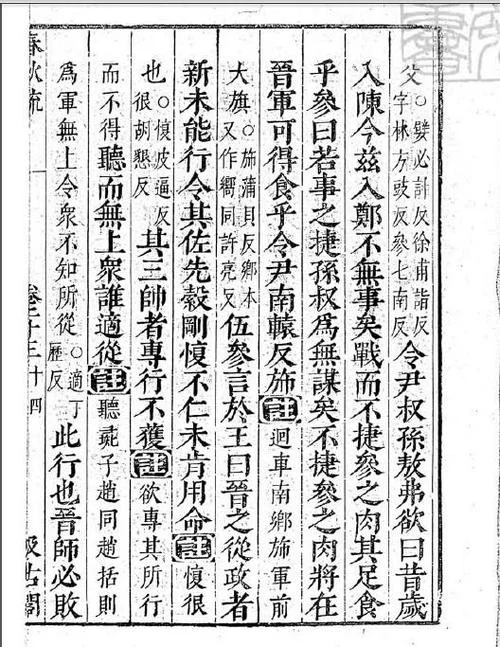 父○嬖必計反徐甫詣反字林方豉反參七南反令尹叔孫敖弗欲曰昔歲
入陳今茲入鄭不無事矣戰而不捷參之肉其足食
乎參曰若事之捷孫叔爲無謀矣不捷參之肉將在
晉軍可得食乎令尹南轅反斾註迴車南鄉斾軍前
大旗○斾蒲貝反鄉本又作嚮同許亮反伍參言於王曰晉之從政者
新未能行令其佐先縠剛愎不仁未肯用命註愎很
也○愎皮逼反很胡懇反其三帥者專行不獲註欲專其所行
而不得聽而無上衆誰適從註聽彘子趙同趙括則
爲軍無上令衆不知所從○適丁歷反此行也晉師必敗
春秋疏 卷二十三 十四 汲古閣